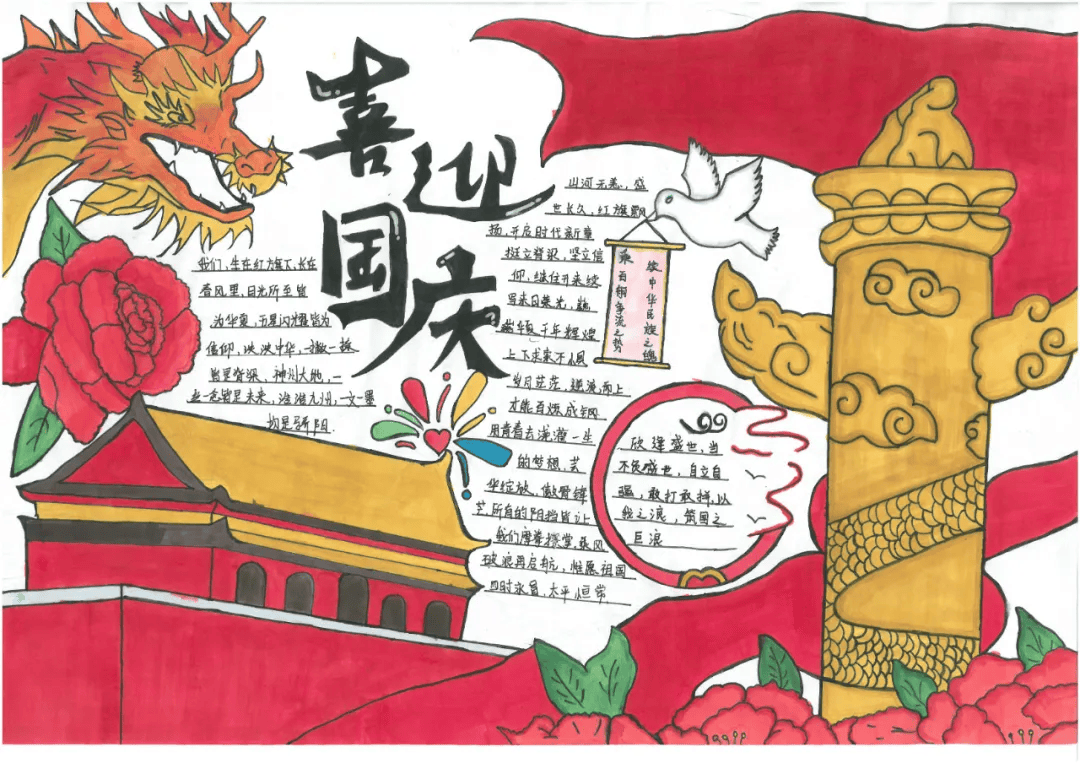 喜迎
国庆
我们，生在红旗下，长在
春风里，目光所至皆
为华夏，五星闪耀皆为
信仰，泱泱中华，一撇一捺
皆是脊梁，神州大地，一
丝一念皆是未来，淮淮九州，一文一墨
均是骄阳．
山河无恙，盛
世长久，红旗飘
扬，开启时代新章
挺立脊梁，坚立信
仰，继往开来续
写来日荣光，踏
华夏千年辉煌
上下求索不惧
岁月茫茫，逆流而上
才能百炼成钢
用青春去浇灌一生
的梦想，芸
华绽放，傲骨铮
芒，所有的阻挡皆让
我们摩拳擦掌，乘风
破浪再启航，惟愿祖国
四时永昌，太平恒常．
乘百舸争流之势
绘中华民族之鸿
欣逢盛世，当
不负盛世，自立自
强，敢打敢拼，以
我之浪，筑国之
巨浪